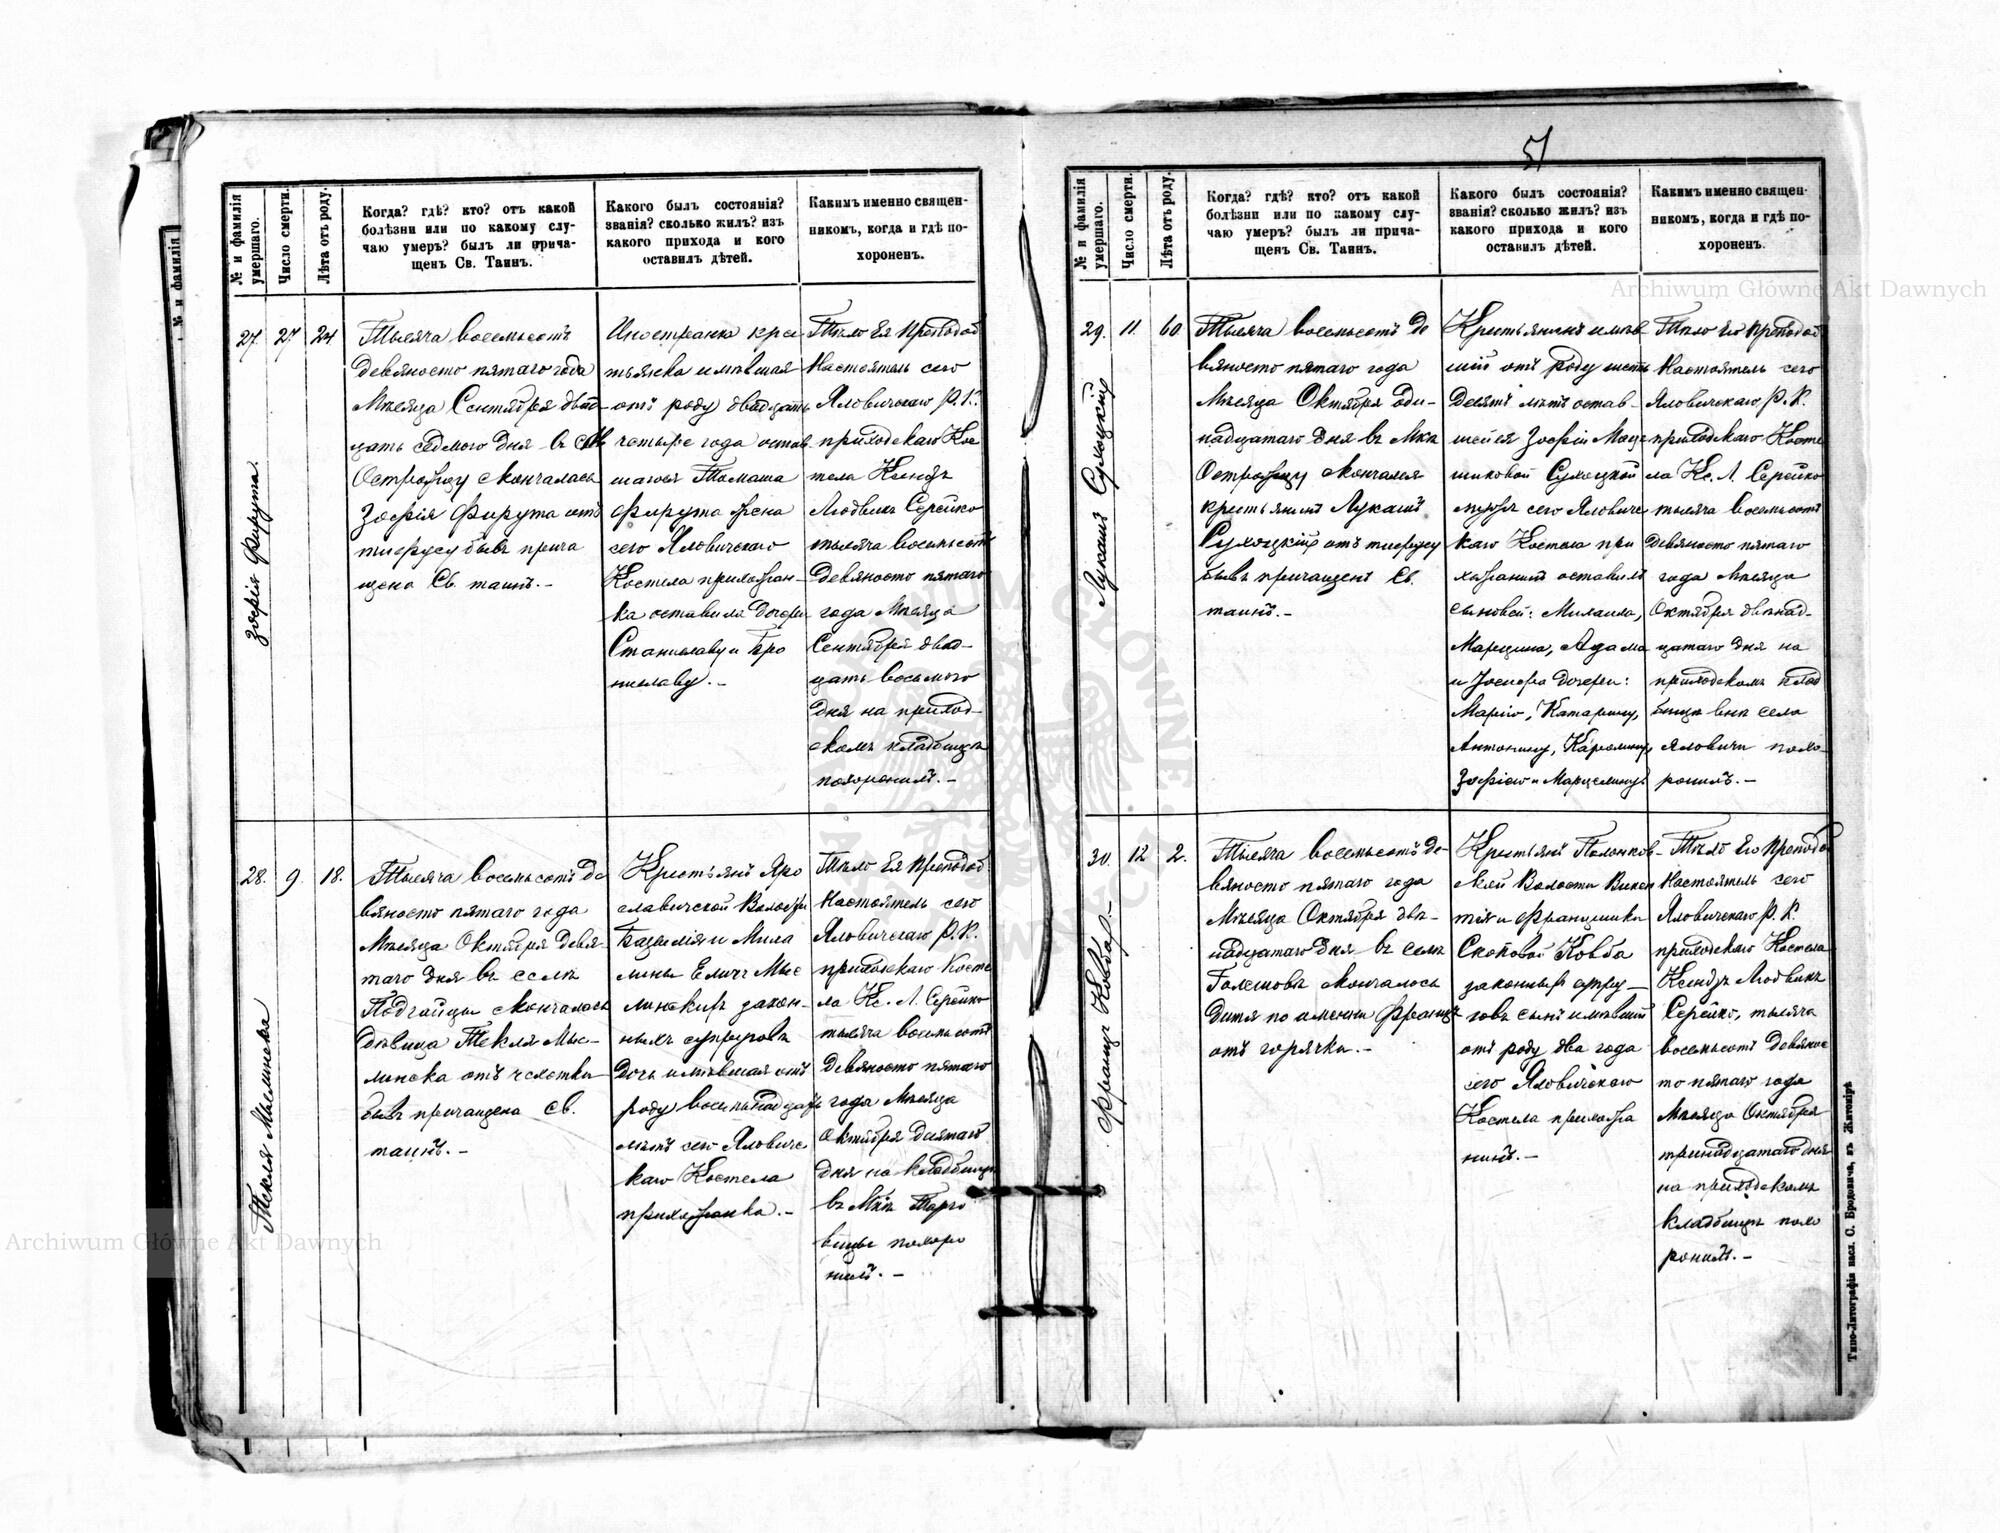 51
№ и фамилія
умершаго.
Число смерти.
Лѣта отъ роду.
Когда? гдѣ? кто? отъ какой
болѣзни или по какому слу-
чаю умеръ? былъ ли прича-
щенъ Св. Таинъ.
Какого былъ состоянія?
званія? сколько жилъ? изъ
какого прихода и кого
оставилъ дѣтей.
Какимъ именно священ-
никомъ, когда и гдѣ по-
хороненъ.
27.
Зофія Фирута.
27
24
Тысяча восемьсотъ
девяносто пятаго года
Мѣсяца Сентября двад-
цать седмого дня въ
скончалась
Зофія Фирута отъ
тифусу бывъ прича
щена Св. таинъ.-
Иностранка кре
стьянка имѣвшая
отъ роду двадцать
четыре года остав
шагося Томаша
Фирута жена
сего Яловичскаго
Костела прихожан-
ка оставила дочери
Станиславу и Бро
ниславу.-
Тѣло Ея Преподоб
Настоятель сего
Яловичскаго Р. К.
приходскаго Кос
тела Ксендзъ
Людвикъ Серейко
тысяча восемьсотъ
девяносто пятаго
года Мѣсяца
Сентября двад-
цать восьмого
дня на приход-
скомъ кладбищѣ
похоронилъ.-
28.
Текля Мыслинска
9.
18.
Тысяча восемьсотъ де
вяносто пятаго года
Мѣсяца Октября девя-
таго дня въ селѣ
Подгайцы скончалась
дѣвица Текля Мыс-
линска отъ чахотки
бывъ причащена Св.
таинъ.-
Крестьянъ Яро
славичской Волости
и
Мыс
линскихъ закон-
ныхъ супруговъ
дочь имѣвшая отъ
роду восемьнадцать
лѣтъ сего Яловичс
каго Костела
прихожанка.-
Тѣло Ея Преподоб
Настоятель сего
Яловичскаго Р. К.
приходскаго Косте
ла Кс. Л. Серейко
тысяча восемьсотъ
девяносто пятаго
года Мѣсяца
Октября
дня на кладбищѣ
въ Мкѣ Торго
вицы похоро
нилъ.-
№ и фамилія
умершаго.
Число смерти.
Лѣта отъ роду.
Когда? гдѣ? кто? отъ какой
болѣзни или по какому слу-
чаю умеръ? былъ ли прича-
щенъ Св. Таинъ.
Какого былъ состоянія?
званія? сколько жилъ? изъ
какого прихода и кого
оставилъ дѣтей.
Какимъ именно священ-
никомъ, когда и гдѣ по-
хороненъ.
29.
Лукашъ Сулоцкій
11.
60
Тысяча восемьсотъ де
вяносто пятаго года
Мѣсяца Октября оди-
надцатаго дня въ Мкѣ
скончался
крестьянинъ Лукашъ
Сулоцкій отъ тифусу
бывъ причащенъ Св.
таинъ.-
Крестьянинъ имѣв
шій отъ роду шесть
десятъ лѣтъ остав-
шейся Зофіи
Сулоцкой
мужъ сего Яловичс
каго Костела при
хожанинъ оставилъ
сыновей: Михаила,
Марцина, Адама
и Іосифа дочери:
Марію, Катарину,
Антонину, Каролину,
Зофію и Марцелину
Тѣло Его Преподоб
Настоятель сего
Яловичскаго Р. К.
приходскаго Косте
ла Кс. Л. Серейко
тысяча восемьсотъ
девяносто пятаго
года Мѣсяца
Октября двѣнад-
цатаго дня на
приходскомъ клад
бищѣ внѣ села
Яловичи похо-
ронилъ.-
30.
Францъ Ковба.-
12
2.
Тысяча восемьсотъ де-
вяносто пятаго года
Мѣсяца Октября двѣ-
надцатаго дня въ селѣ
скончалось
дитя по имени Францъ
отъ горячки.-
Крестьянъ Полонков-
ской Волости Викен
тія и Францишки
Ковба
законныхъ супру-
говъ сынъ имѣвшій
отъ роду два года
сего Яловичскаго
Костела прихожа
нинъ.-
Тѣло Его Преподо
Настоятель сего
Яловичскаго Р. К.
приходскаго Костела
Ксендзъ Людвикъ
Серейко, тысяча
восемьсотъ девянос
то пятаго года
Мѣсяца Октября
тринадцатаго дня
на приходскомъ
кладбищѣ похо
ронилъ.-
Типо-Литографія насл. С. Бродовича, въ Житомірѣ
№ и фамилія
Archiwum Główne Akt Dawnych
Archiwum Główne Akt Dawnych